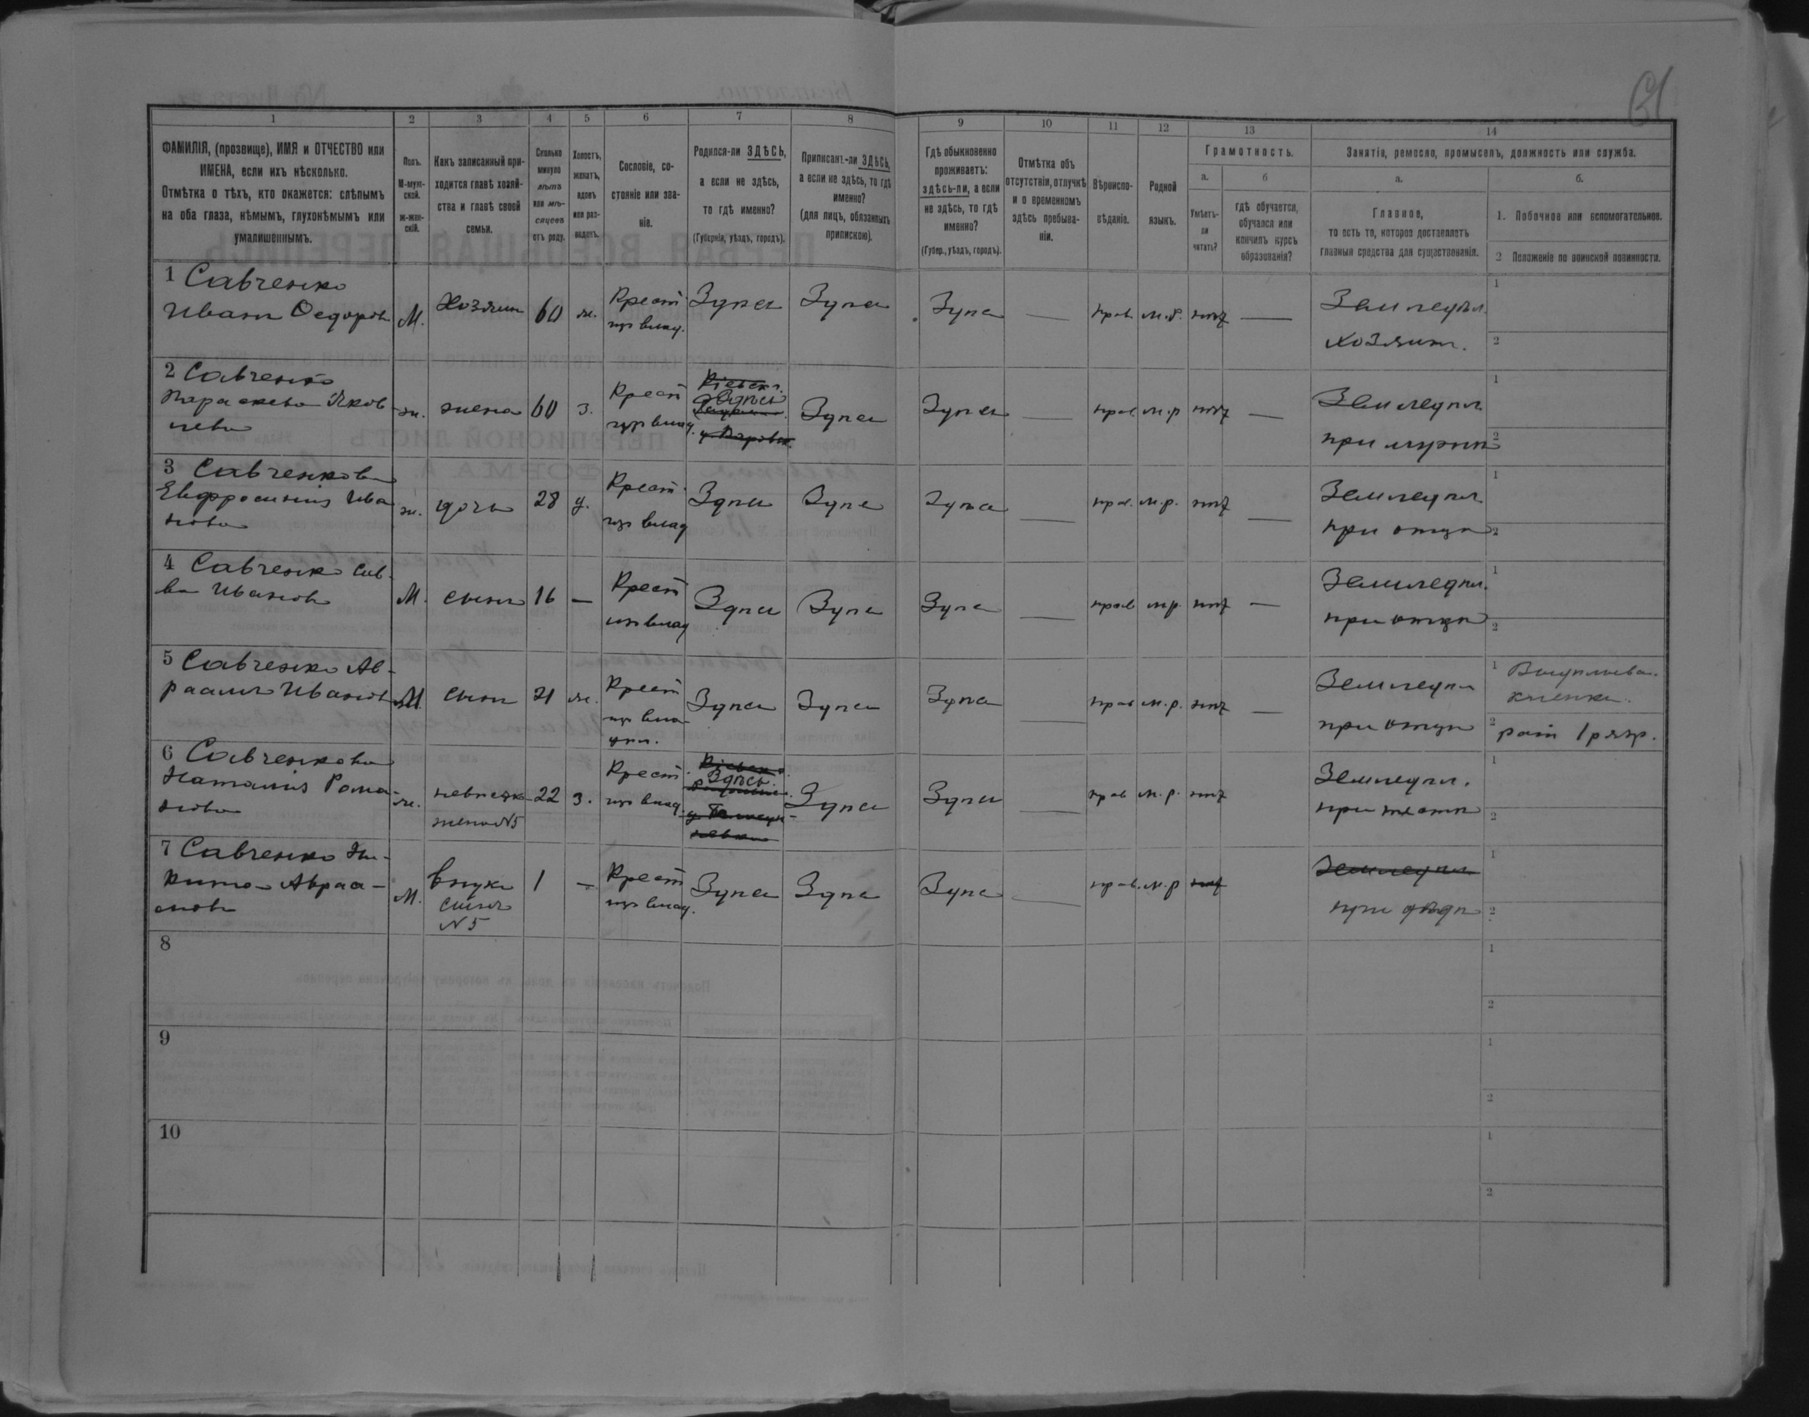 1 2 3 4 5 6 7 8 9 10 11 12 13 14
ФАМИЛІЯ, (прозвище), ИМЯ и ОТЧЕСТВО или
ИМЕНА, если ихъ нѣсколько.
Отмѣтка о тѣхъ, кто окажется: слѣпымъ
на оба глаза, нѣмымъ, глухонѣмымъ или
умалишеннымъ.
Полъ.
М-муж-
ской.
ж-жен-
скій.
Какъ записанный при-
ходится главѣ хозяй-
ства и главѣ своей
семьи.
Сколько
минуло
лѣтъ
или мѣ-
сяцевъ
отъ роду.
Холостъ,
женатъ,
вдовъ
или раз-
веденъ.
Сословіе, со-
стояніе или зва-
ніе.
Родился-ли ЗДѢСЬ,
а если не здѣсь,
то гдѣ именно?
(Губернія, уѣздъ, городъ).
Приписанъ-ли ЗДѢСЬ,
а если не здѣсь, то гдѣ
именно?
(для лицъ, обязанныхъ
припискою).
Гдѣ обыкновенно
проживаетъ:
здѣсь-ли, а если
не здѣсь, то гдѣ
именно?
(Губер., уѣздъ, городъ).
Отмѣтка объ
отсутствіи, отлучкѣ
и о временномъ
здѣсь пребыва-
ніи.
Вѣроиспо-
вѣданіе.
Родной
языкъ.
Грамотность.
а.
Умѣетъ-
ли
читать?
б
гдѣ обучается,
обучался или
кончилъ курсъ
образованія?
Занятіе, ремесло, промыселъ, должность или служба.
а.
Главное,
то есть то, которое доставляетъ
главныя средства для существованія.
б.
1. Побочное или вспомогательное.
2 Положеніе по воинской повинности.
1 Савченко
Иванъ Федоровъ М. Хозяин 60 ж. Крест. изъ влад. Здѣсь Здѣсь Здѣсь — прав. м.р. нѣт — Земледѣл. хозяинъ.
2 Савченко
Параскева Яков-
лева ж. жена 60 з. Крест изъ влад. Здѣсь Здѣсь Здѣсь — прав м.р нѣт — Земледѣл. при мужѣ
3 Савченкова
Евфросинія Ива-
нова ж. дочь 28 д. Крест. изъ влад Здѣсь Здѣсь Здѣсь — прав. м.р. нѣт — Земледѣл. при отцѣ
4 Савченко Сав-
ва Ивановъ М. сынъ 16 — Крест изъ влад Здѣсь Здѣсь Здѣсь — прав м.р. нѣт — Земледѣл. при отцѣ
5 Савченко Ав-
раамъ Ивановъ М сынъ 21 ж. Крест изъ вла-
дѣл. Здѣсь Здѣсь Здѣсь — прав м.р. нѣт — Земледѣл при отцѣ
2 рат 1 разр.
6 Савченкова
Наталія Рома-
нова ж. невѣстка
жена №5 22 з. Крест. изъ влад. Здѣсь Здѣсь Здѣсь — прав м.р. нѣт Земледѣл. при
7 Савченко Ни-
кита Авраа-
мовъ М. внукъ
сынъ
№5 1 — Крест изъ влад. Здѣсь Здѣсь Здѣсь — прав. м.р нѣт Земледѣл при дѣдѣ
8
9
10